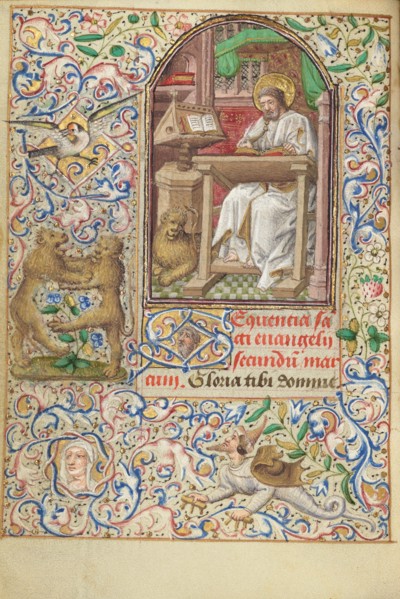 Sequentia sa
cti evangelij
secundū mar
cum. Gloria tibi domine.